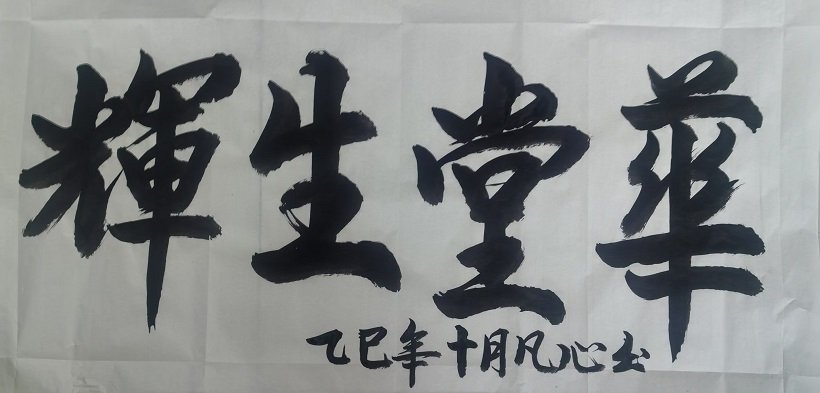 華堂生輝
乙巳年十月凡心书